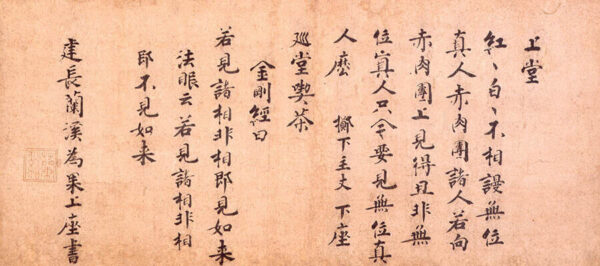 上堂
紅〻白〻不相謾無位
真人赤肉團諸人若向
赤肉團上見得且非無
位真人只今要見無位真
人麼 擲下主丈 下座
廵堂喫茶
金剛經曰
若見諸相非相即見如来
法眼云若見諸相非相
即不見如来
建長蘭溪為果上座書